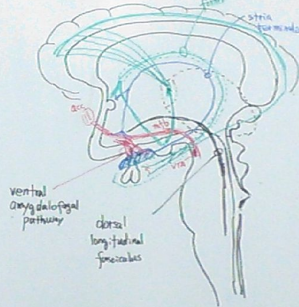 stria
terminalis
acc
mfb
VTA
ventral
amygdalofugal
pathway
dorsal
longitudinal
fasciculus